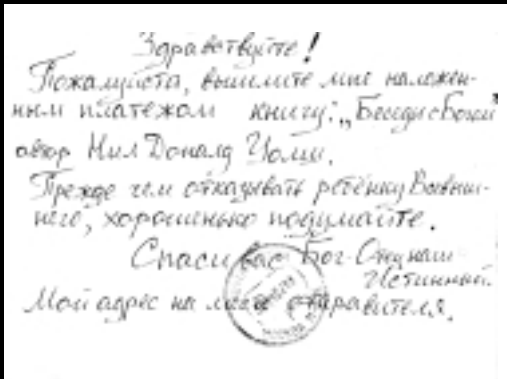 Здравствуйте!
Пожалуйста, вышлите мне наложен-
ным платежом книгу: „Беседы с Богом"
автор Нил Доналд Уолш.
Прежде чем отказывать ребёнку Всевыш-
него, хорошенько подумайте.
Спаси вас Бог-Отец наш
Истинный.
Мой адрес на месте отправителя.